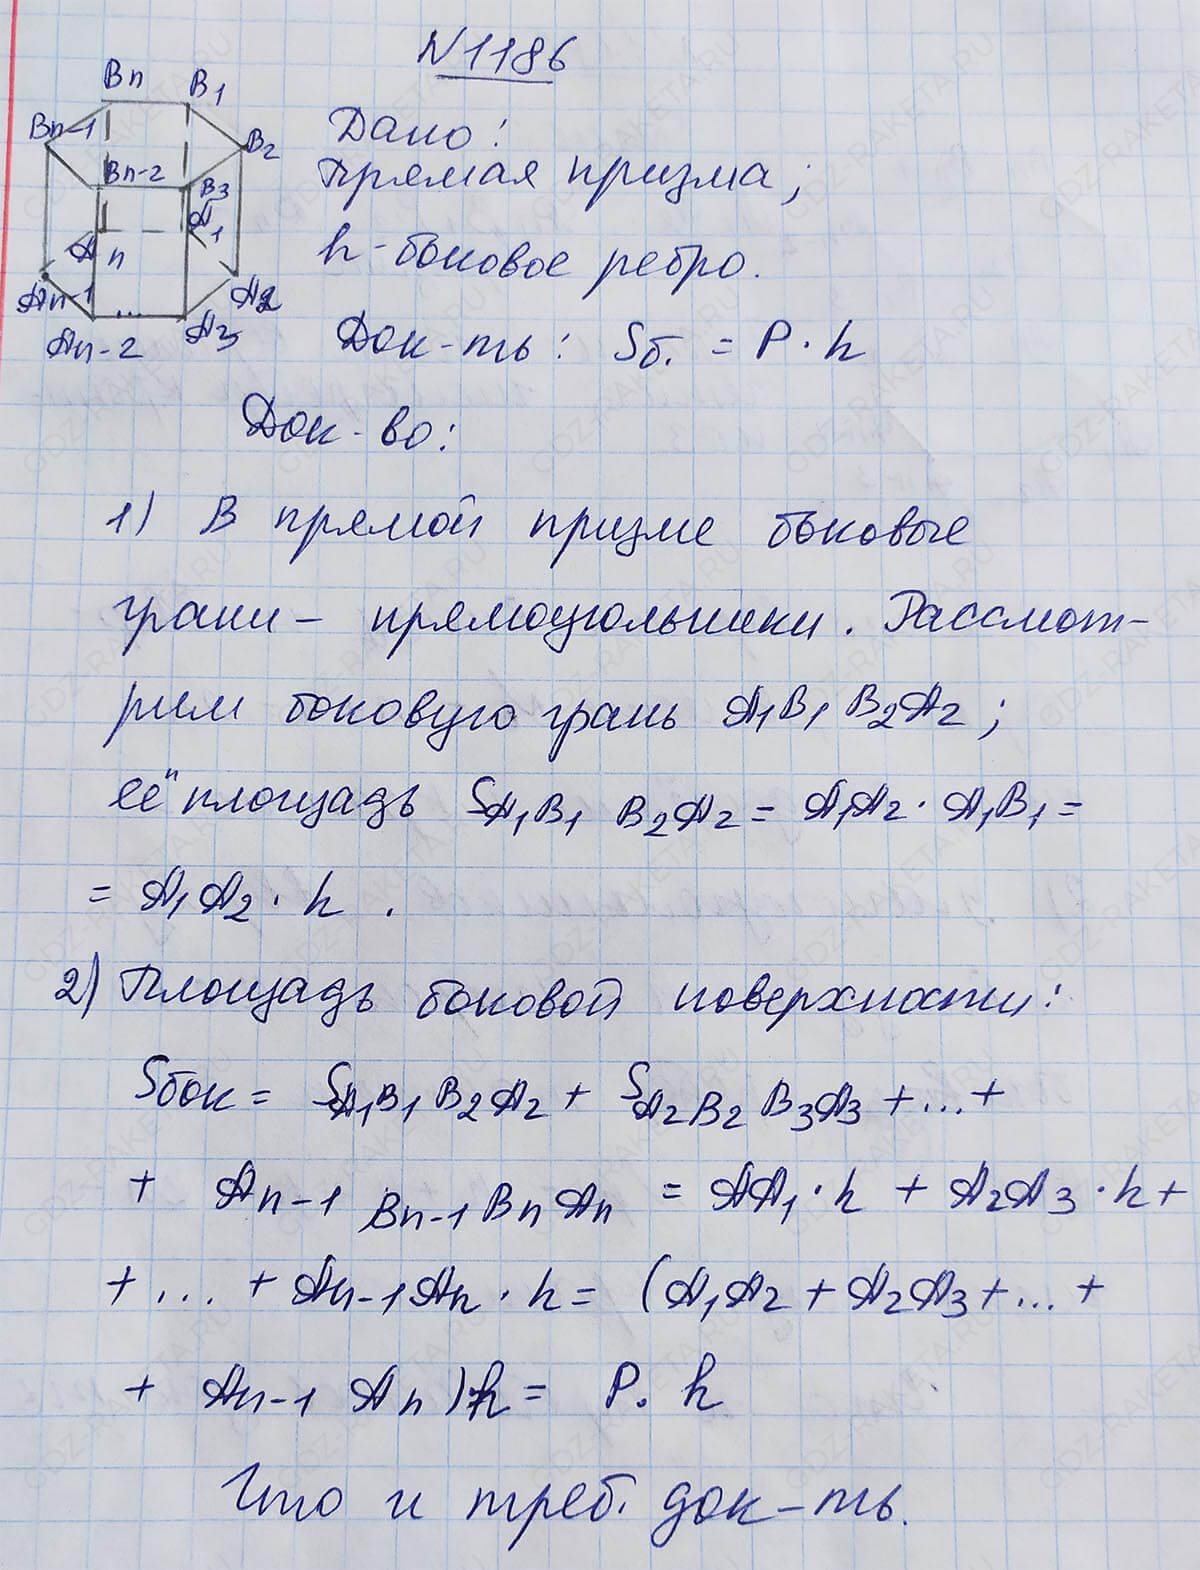 N1186
Bn B1
Bn-1 B2
Bn-2 B3
An A1
An-1 A2
... 
An-2 A3
Дано:
прямая призма;
h-боковое ребро.
Док-ть: Sб. = P·h
Док-во:
1) В прямой призме боковые
грани – прямоугольники. Рассмот-
рим боковую грань A1B1B2A2;
её площадь SA1B1B2A2 = A1A2·A1B1 =
= A1A2·h.
2) Площадь боковой поверхности:
Sбок = SA1B1B2A2 + SA2B2B3A3 +...+
+ An-1Bn-1BnAn = AA1·h + A2A3·h+
+ ... + An-1An·h = (A1A2 + A2A3 +...+
+ An-1An)·h = P·h
Что и треб. док-ть.
GDZ-RAKETA.RU